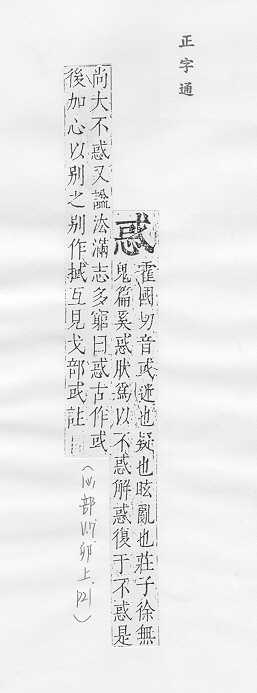 正字通
惑
霍國切音或迷也疑也眩亂也莊子徐無
鬼篇奚惑狀爲以不惑解惑復于不惑是
尚大不惑又諡法滿志多窮曰惑古作或
後加心以別之別作㦯互見戈部或註
(心部 卯上, P21)